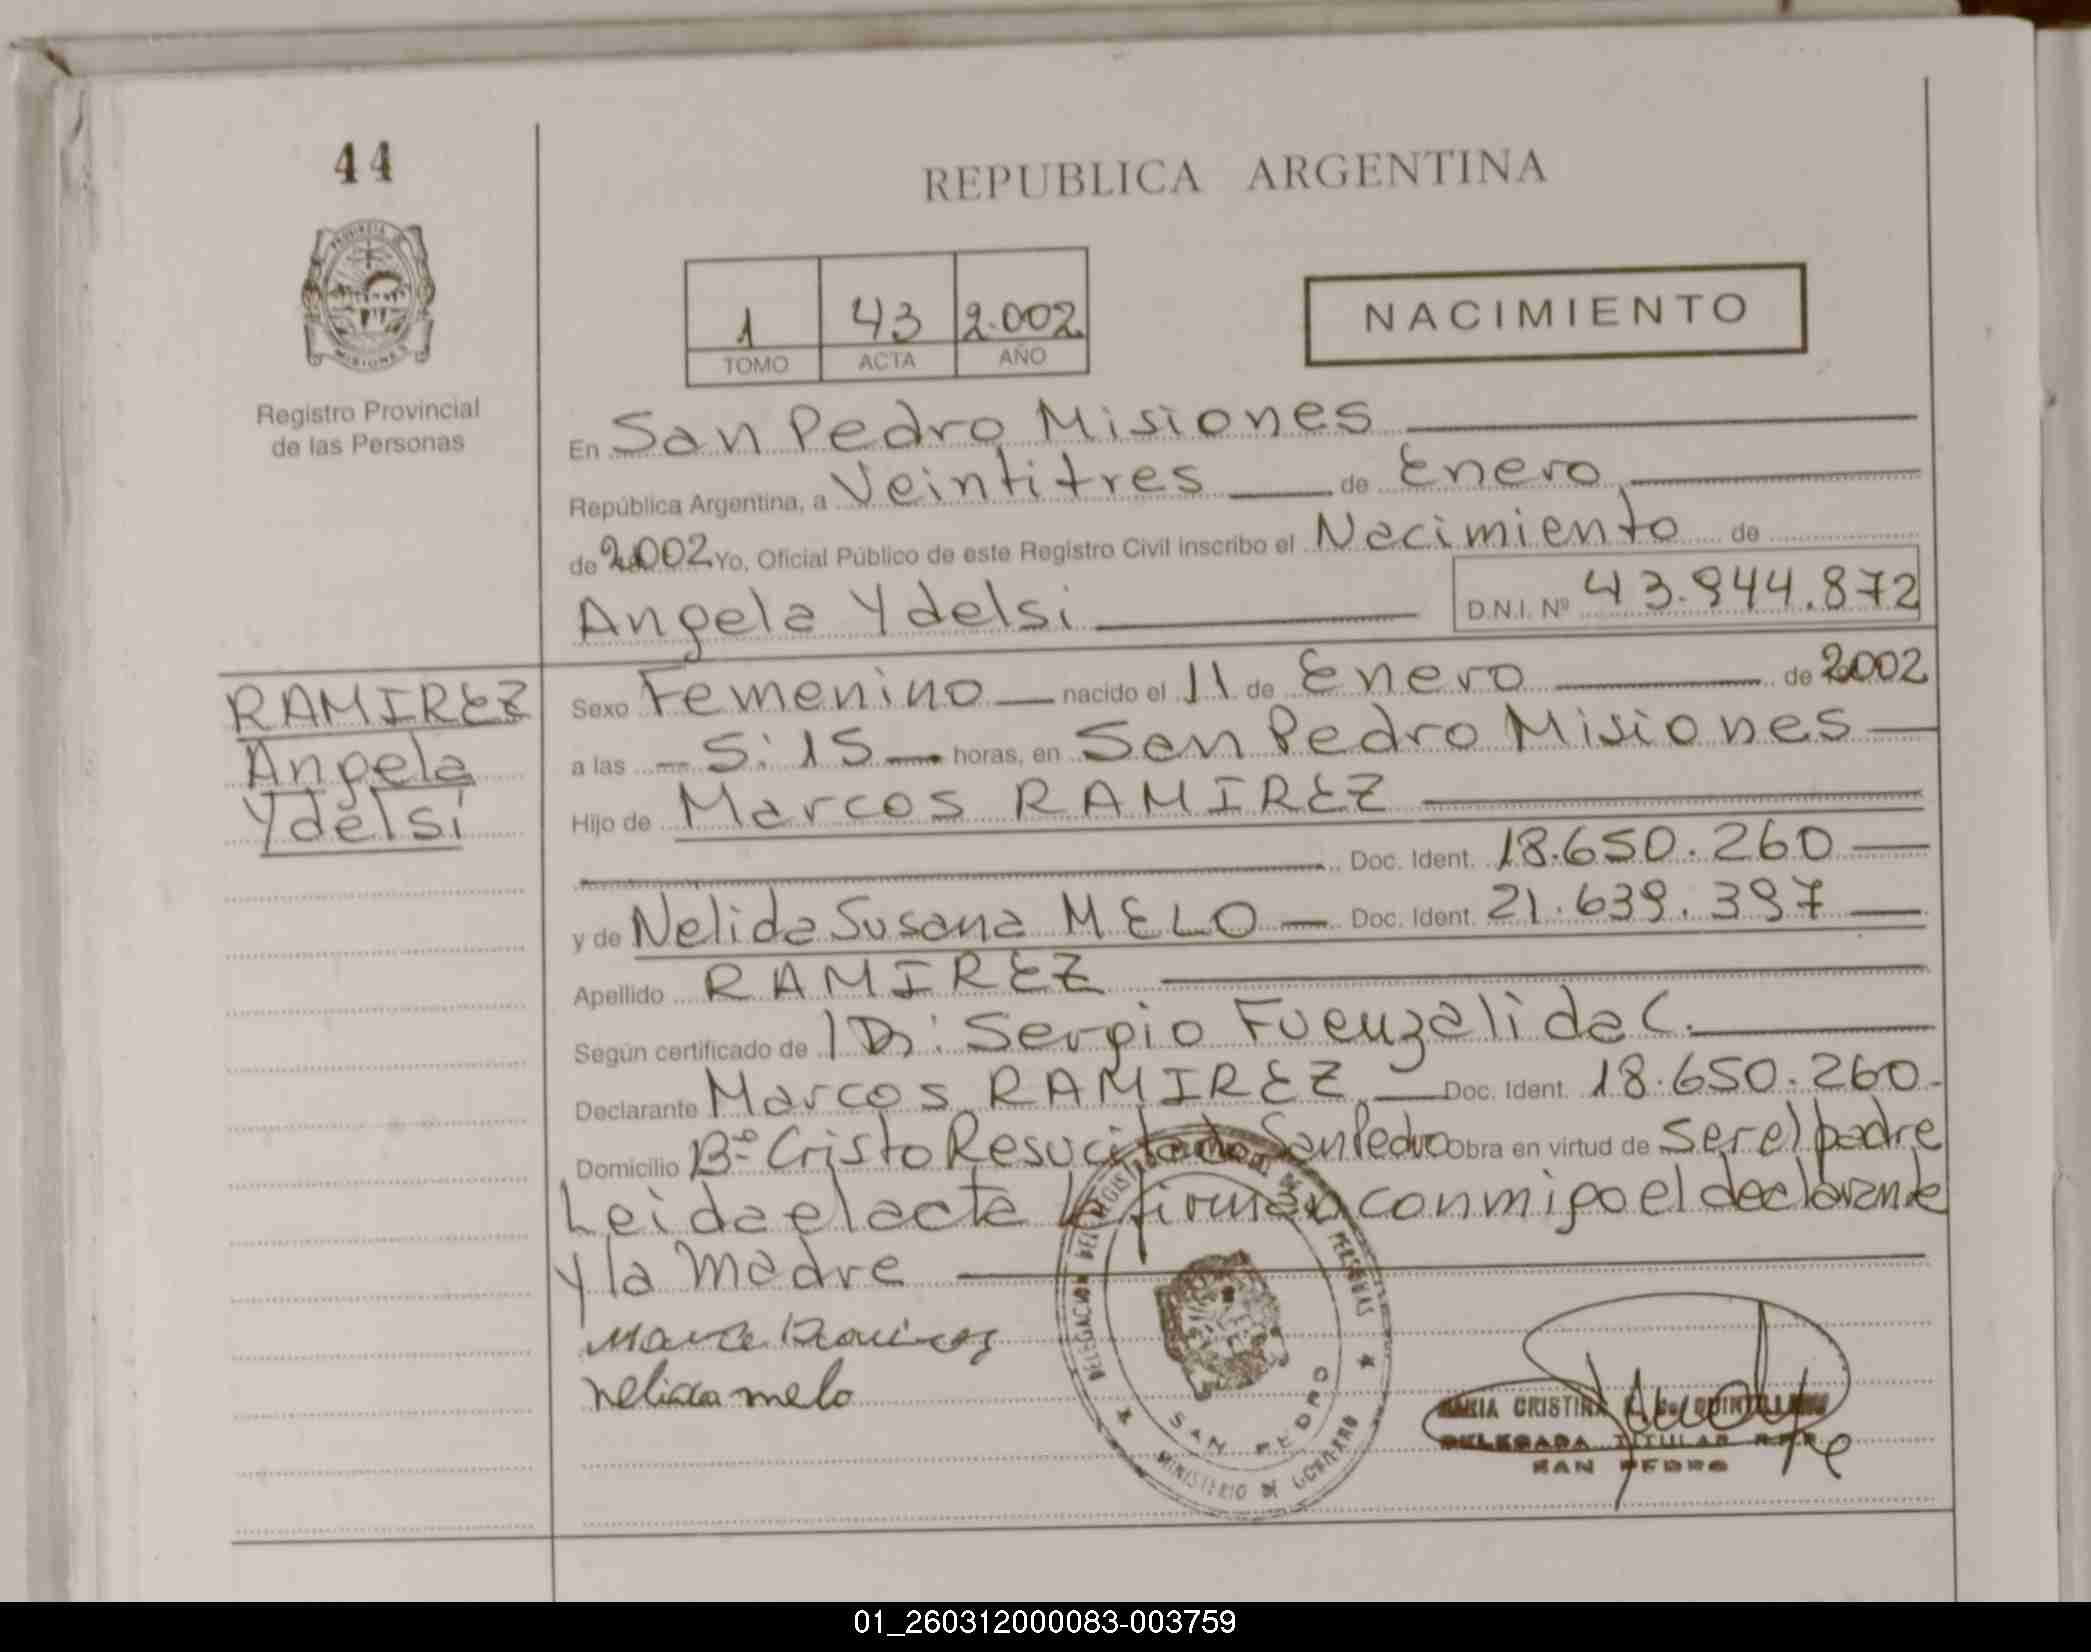 44
REPUBLICA ARGENTINA
PROVINCIA DE
MISIONES
1 43 2.002
TOMO ACTA AÑO
NACIMIENTO
Registro Provincial
de las Personas
En San Pedro Misiones
República Argentina, a Veintitres de Enero
de 2.002 Yo, Oficial Público de este Registro Civil inscribo el Nacimiento de
Angela Ydelsi D.N.I. Nº 43.944.872
RAMIREZ
Angela
Ydelsi
Sexo Femenino nacido el 11 de Enero de 2.002
a las 5:15 horas, en San Pedro Misiones
Hijo de Marcos RAMIREZ
Doc. Ident. 18.650.260
y de Nelida Susana MELO Doc. Ident. 21.639.397
Apellido RAMIREZ
Según certificado de Sergio Fuenzalida C.
Declarante Marcos RAMIREZ Doc. Ident. 18.650.260
Domicilio Bº Cristo Resucitado San Pedro Obra en virtud de ser el padre
Leida el acta la firman conmigo el declarante
y la madre
Ramirez
nelida melo
DELEGACION DEL REGISTRO DE PERSONAS
SAN PEDRO
MINISTERIO DE GOBIERNO
MARIA CRISTINA
DELEGADA TITULAR R.P.P.
SAN PEDRO
01_260312000083-003759